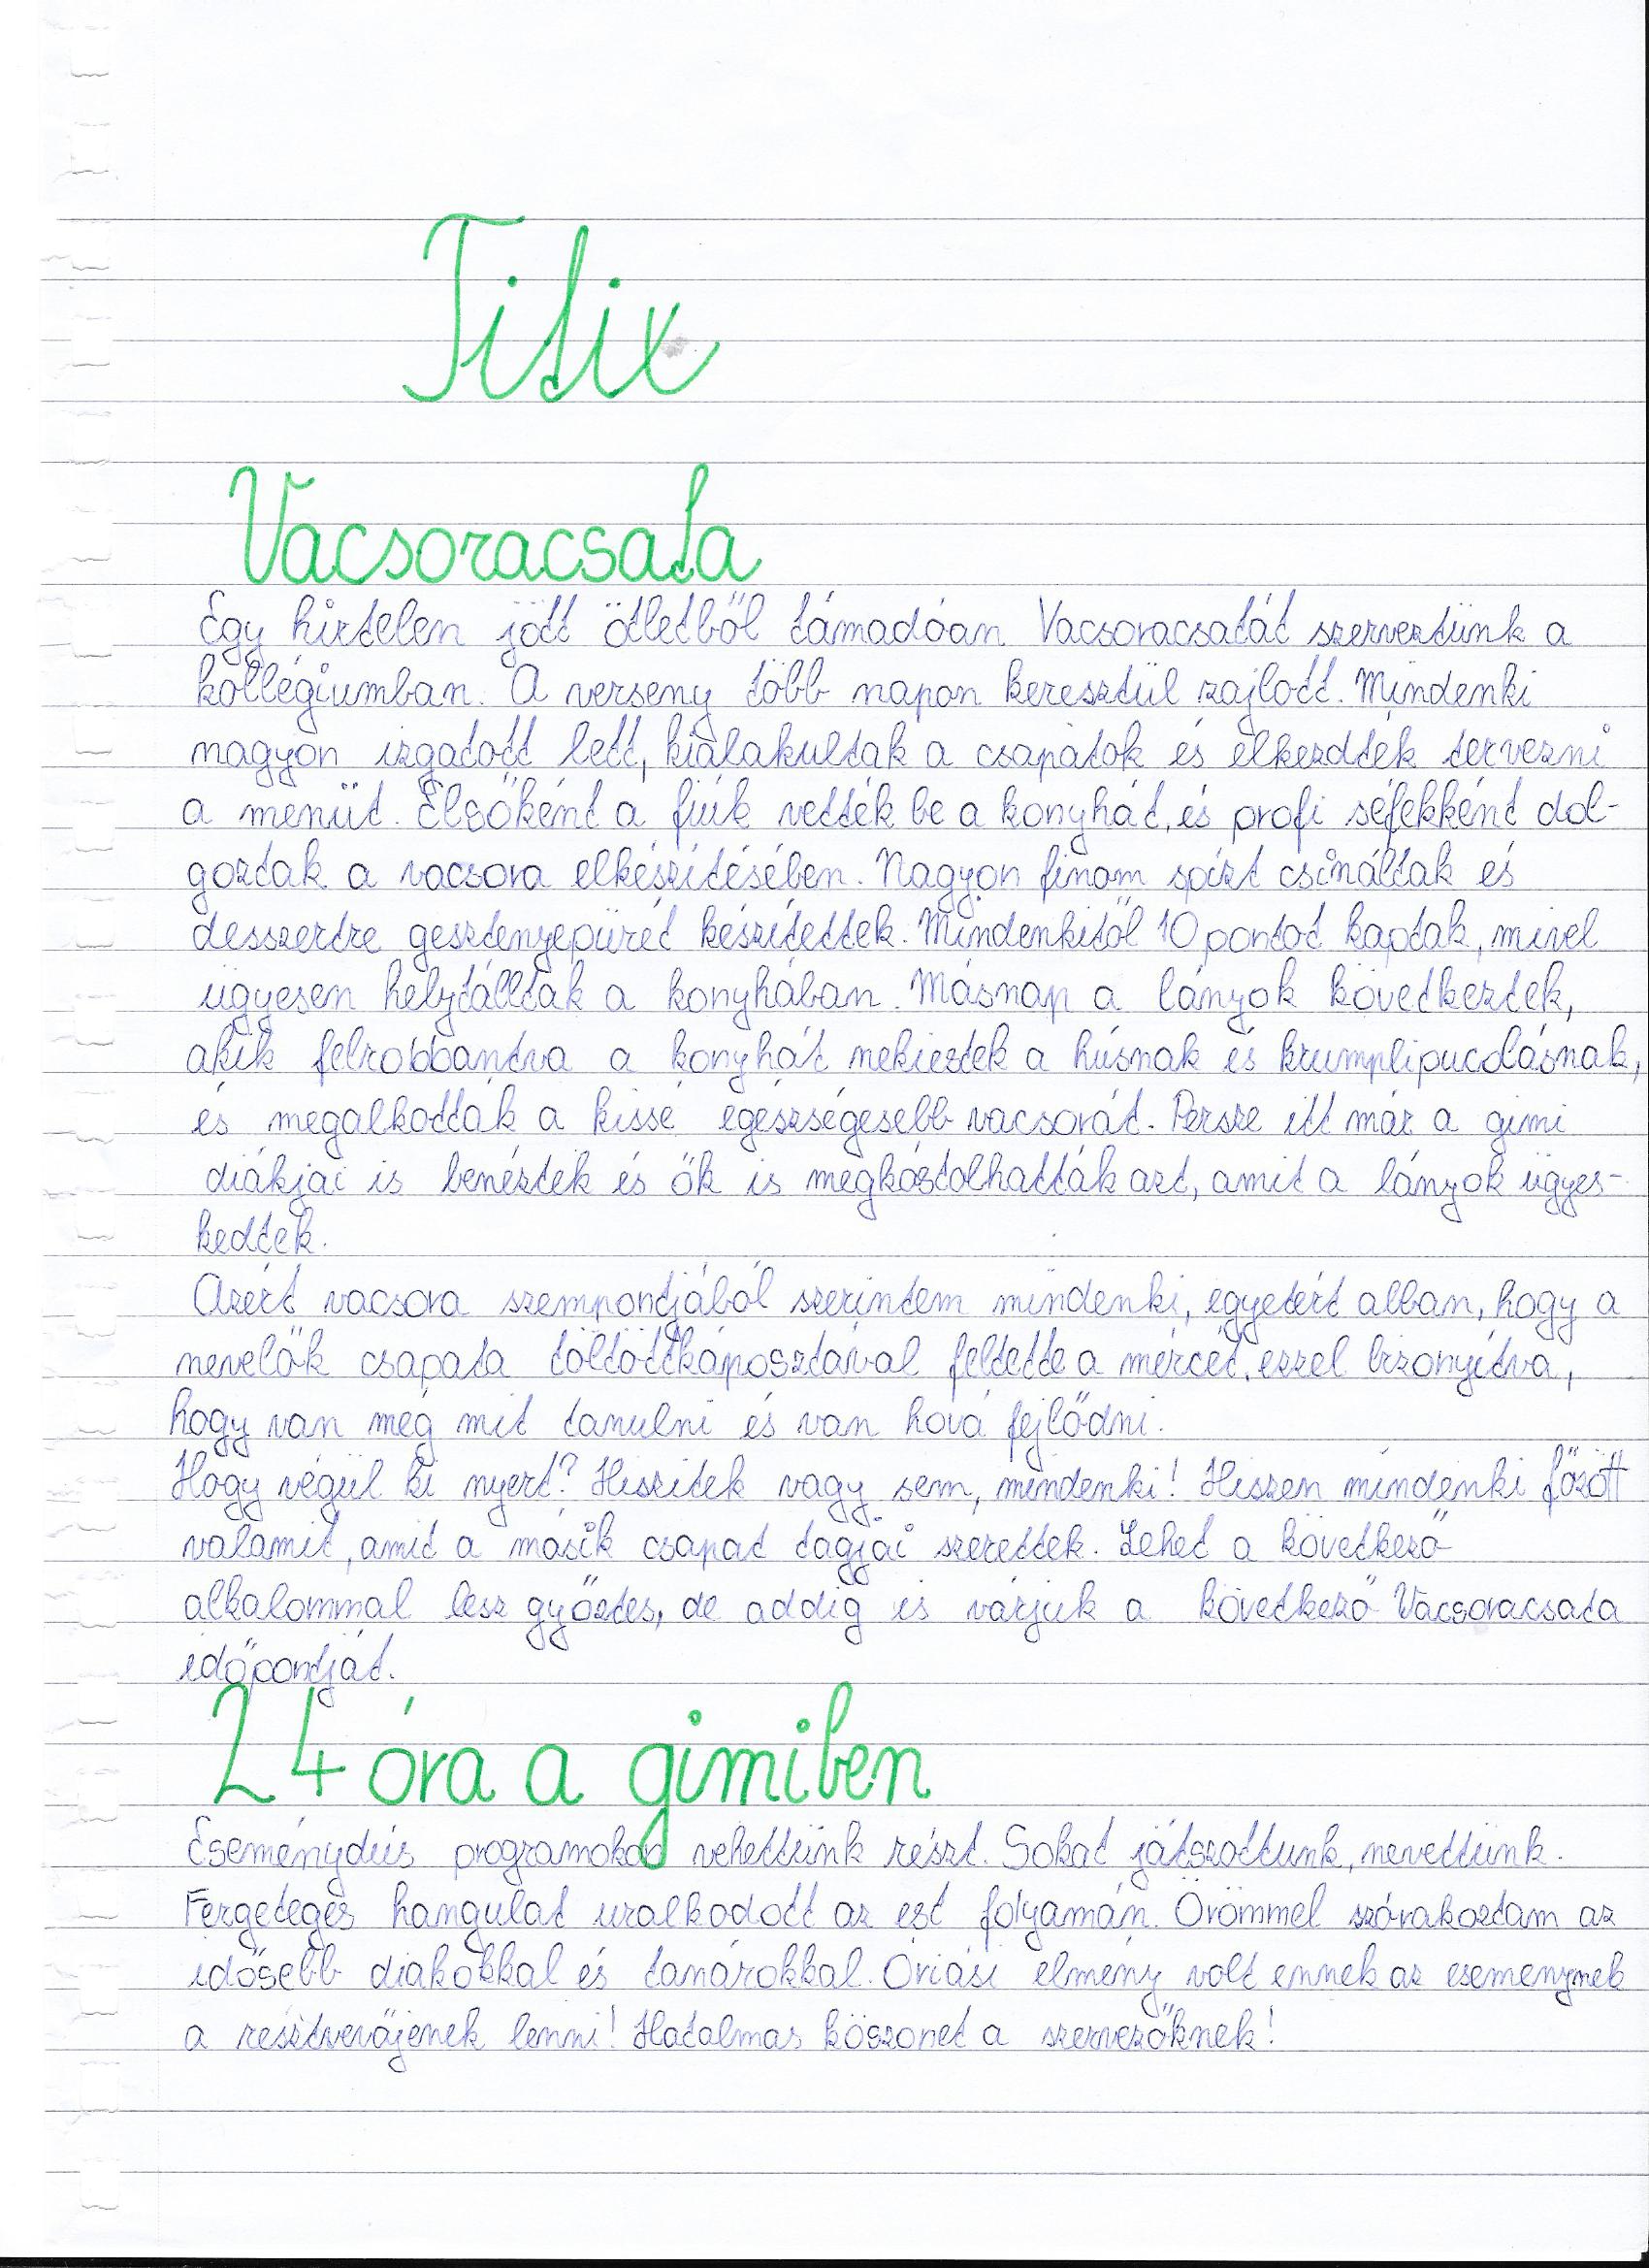 Titix
Vacsoracsata
Egy hirtelen jött ötletből támadóan Vacsoracsatát szerveztünk a
kollégiumban. A verseny több napon keresztül zajlott. Mindenki
nagyon izgatott lett, kialakultak a csapatok és elkezdték tervezni
a menüt. Elsőként a fiúk vették be a konyhát, és profi séfekként dol-
goztak a vacsora elkészítésében. Nagyon finom spízt csináltak és
desszertre gesztenyepürét készítettek. Mindenkitől 10 pontot kaptak, mivel
ügyesen helytálltak a konyhában. Másnap a lányok következtek,
akik felrobbantva a konyhát nekiestek a húsnak és krumplipucolásnak,
és megalkották a kissé egészségesebb vacsorát. Persze itt már a gimi
diákjai is benéztek és ők is megkóstolhatták azt, amit a lányok ügyes-
kedtek.
Azért vacsora szempontjából szerintem mindenki, egyetért abban, hogy a
nevelők csapata töltöttkáposztával feltette a mércét, ezzel bizonyítva,
hogy van még mit tanulni és van hová fejlődni.
Hogy végül ki nyert? Hiszitek vagy sem, mindenki! Hiszen mindenki főzött
valamit, amit a másik csapat tagjai szerettek. Lehet a következő
alkalommal lesz győztes, de addig is várjuk a következő Vacsoracsata
időpontját.
24 óra a gimiben
Eseménydús programokon vehettünk részt. Sokat játszottunk, nevettünk.
Fergeteges hangulat uralkodott az est folyamán. Örömmel szórakoztam az
idősebb diákokkal és tanárokkal. Óriási élmény volt ennek az eseménynek
a résztvevőjének lenni! Hatalmas köszönet a szervezőknek!